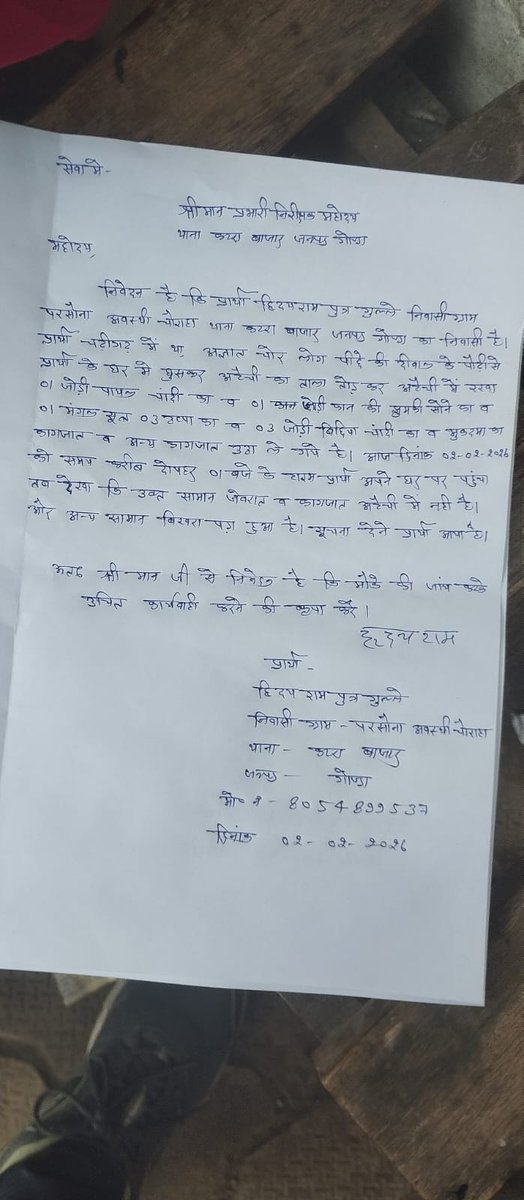 सेवा मे -
श्री मान प्रभारी निरीक्षक महोदय
थाना कटरा बाजार जनपद गोण्डा
महोदय,
निवेदन है कि प्रार्थी हिदयराम पुत्र गुल्ले निवासी ग्राम
परसौना अवस्थी चौराहा थाना कटरा बाजार जनपद गोण्डा का निवासी है।
प्रार्थी चंडीगढ़ में था, अज्ञात चोर लोग पीछे की दीवाल के
प्रार्थी के घर में घुसकर अटैची का ताला तोड़ कर अटैची में रखा
01 जोड़ी पायल चांदी का व 01 कान की झुमकी सोने का व
01 मंगल सूत्र 03 ठप्पा का व 03 जोड़ी बिछिया चांदी का व मुकदमा का
कागजात व अन्य कागजात उठा ले गये है। आज दिनांक 02-02-2026
को समय करीब दोपहर 01 बजे के प्रार्थी अपने घर पर पहुंचा
तब देखा कि उक्त सामान जेवरात व कागजात अटैची में नही है।
और अन्य सामान बिखरा पड़ा हुआ है। सूचना देने प्रार्थी आया है।
अतः श्री मान जी से निवेदन है कि मौके की जांच करके
उचित कार्यवाही करने की कृपा करें।
हृदय राम
प्रार्थी -
हिदय राम पुत्र गुल्ले
निवासी ग्राम - परसौना अवस्थी चौराहा
थाना - कटरा बाजार
जनपद - गोण्डा
मो० नं - 8054899537
दिनांक 02-02-2026